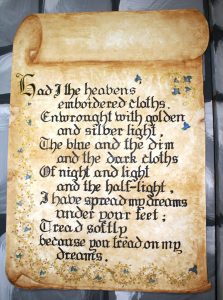 Had I the heavens
emboidered cloths.
Enwrought with golden
and silver light,
The blue and the dim
and the dark cloths
Of night and light
and the half-light,
I have spread my dreams
under your feet;
Tread softly
because you tread on my
dreams.